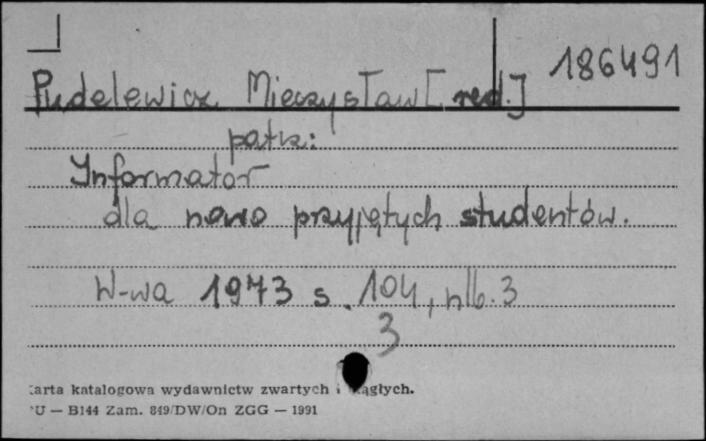 186491
Pudelewicz Mieczysław [red.]
patrz:
Informator
dla nowo przyjętych studentów.
W-wa 1973 s. 104, nlb. 3
3
arta katalogowa wydawnictw zwartych i ągłych.
U — B144 Zam. 849/DW/On ZGG — 1991